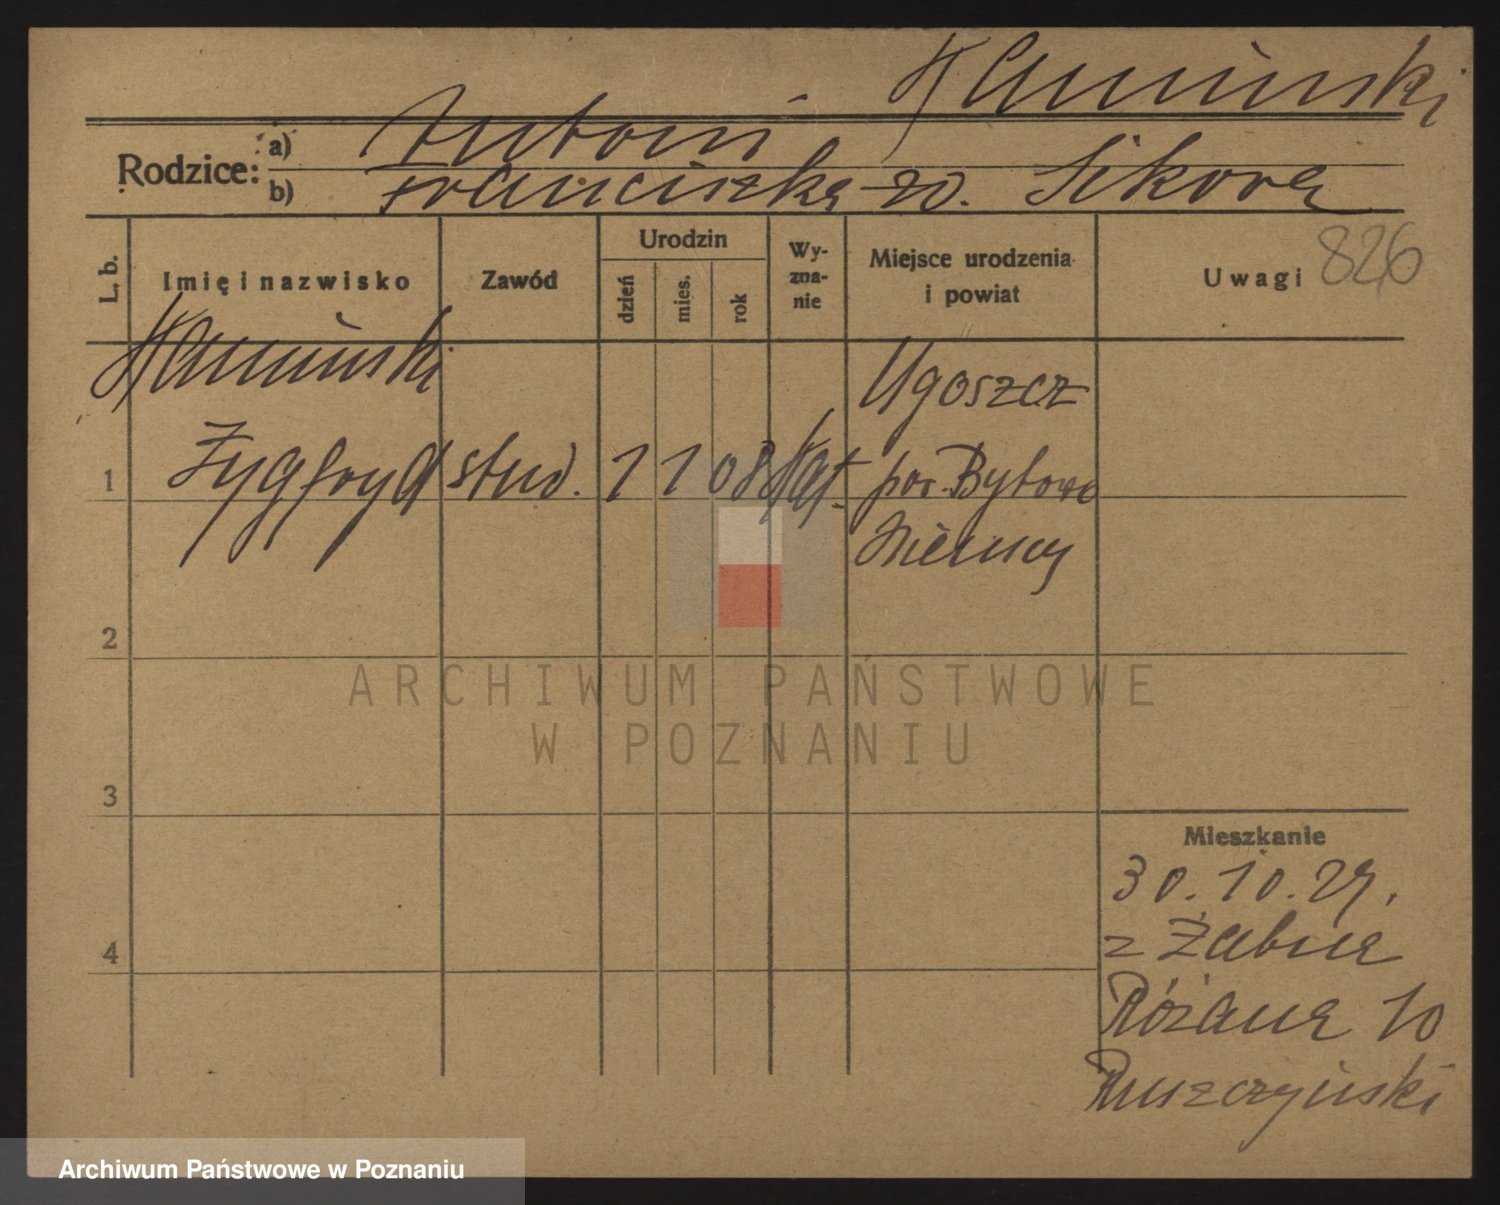 Kamiński
Rodzice: a) Antoni
b) Franciszka zd. Sikora
L. b.
Imię i nazwisko
Zawód
Urodzin
dzień
mies.
rok
Wy-
zna-
nie
Miejsce urodzenia
i powiat
Uwagi 826
Kamiński Ugoszcz
1 Zygfryd stud. 1 1 08 kat. pow. Bytowo
Niemcy
2
3
4
ARCHIWUM PAŃSTWOWE
W POZNANIU
Mieszkanie
30.10.29.
z Żabna
Różana 10
Ruszczyński
Archiwum Państwowe w Poznaniu